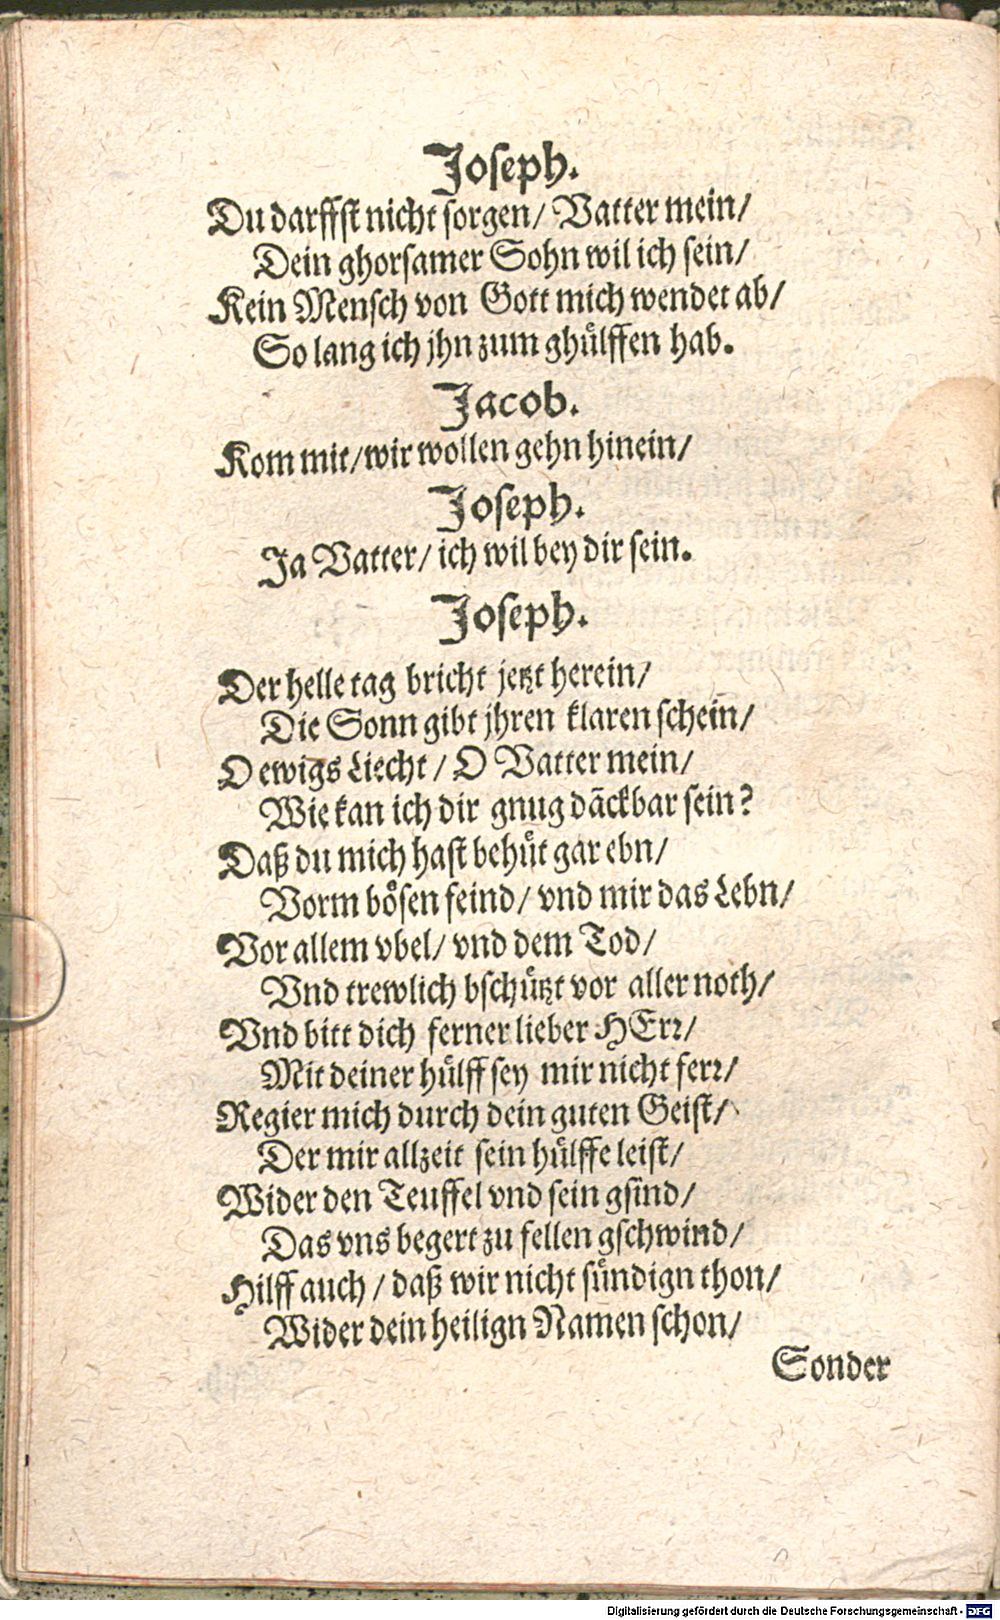 Joseph.
Du darffst nicht sorgen/ Vatter mein/
Dein ghorsamer Sohn wil ich sein/
Kein Mensch von Gott mich wendet ab/
So lang ich jhn zum ghuͤlffen hab.
Jacob.
Kom mit/wir wollen gehn hinein/
Joseph.
Ja Vatter/ ich wil bey dir sein.
Joseph.
Der helle tag bricht jetzt herein/
Die Sonn gibt jhren klaren schein/
O ewigs Liecht / O Vatter mein/
Wie kan ich dir gnug dãckbar sein?
Daß du mich hast behuͤt gar ebn/
Vorm boͤsen feind/ vnd mir das Lebn/
Vor allem vbel/ vnd dem Tod/
Vnd trewlich bschuͤtzt vor aller noth/
Vnd bitt dich ferner lieber HErꝛ/
Mit deiner huͤlff sey mir nicht ferꝛ/
Regier mich durch dein guten Geist/
Der mir allzeit sein huͤlffe leist/
Wider den Teuffel vnd sein gsind/
Das vns begert zu fellen gschwind/
Hilff auch / daß wir nicht suͤndign thon/
Wider dein heilign Namen schon/
Sonder
Digitalisierung gefördert durch die Deutsche Forschungsgemeinschaft - DFG